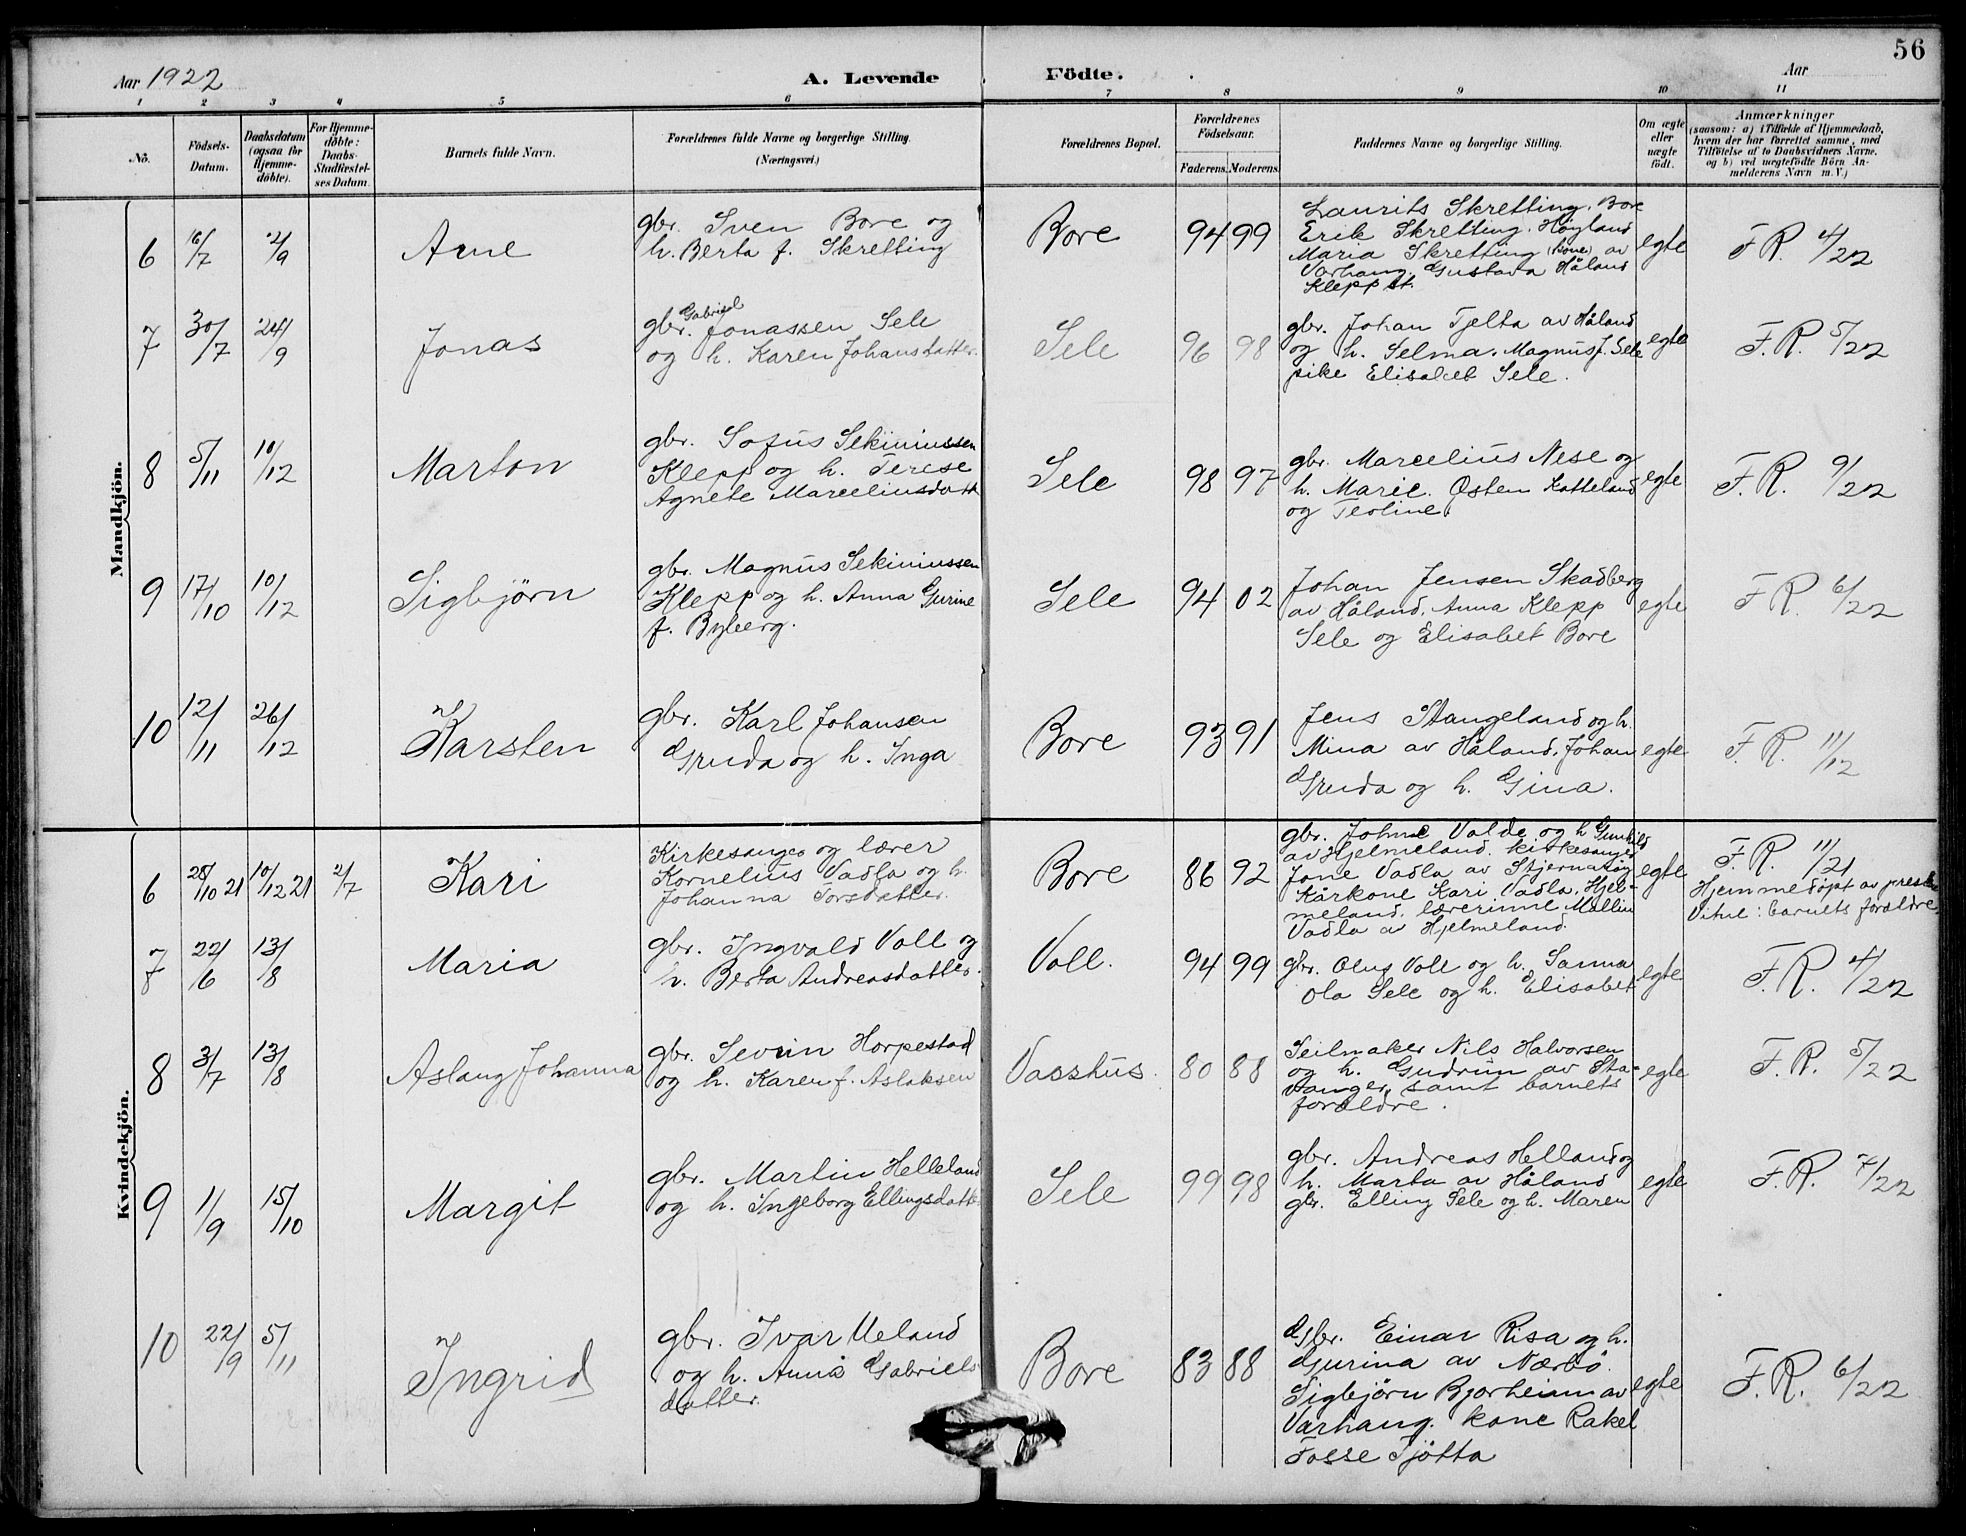 56
Aar 1922
A. Levende Födte.
Aar
1 2 3 4 5 6 7 8 9 10 11
No.
Födsels-Datum.
Daabsdatum (ogsaa for Hjemme-döbte).
For Hjemme-döbte: Daabs-Stadfæstel-ses Datum.
Barnets fulde Navn.
Forældrenes fulde Navne og borgerlige Stilling. (Næringsvei.)
Forældrenes Bopæl.
Forældrenes Födselsaar.
Faderens. Moderens.
Faddernes Navne og borgerlige Stilling.
Om ægte eller uægte födt.
Anmærkninger
(saasom: a) i Tilfælde af Hjemmedaab,
hvem der har forrettet samme, med
Tilföielse af to Daabsvidners Navne,
og b) ved uægtefödte Börn An-
melderens Navn m. V.)
Mandkjön.
6 16/7 2/9 Arne
gbr. Sven Bore og
h. Berta f. Skretting
Bore 94 99
Laurits Skretting, Bore
Erik Skretting, Höyland
Maria Skretting (Bore) av
Varhaug, Gustava Håland
Klepp st.
egte F.R. 4/22
7 30/7 24/9 Jonas
gbr. Gabriel Jonassen Sele
og h. Karen Johansdatter.
Sele 96 98
gbr. Johan Tjelta av Håland
og h. Selma. Magnus J. Sele
pike Elisabet Sele.
egte F.R. 5/22
8 5/11 10/12 Marton
gbr. Sofus Sekiniussen
Klepp og h. Terese
Agnete Marceliusdatt
Sele 98 97
gbr. Marcelius Nese og
h. Marie. Østen Katteland
og Teoline.
egte F.R. 9/22
9 17/10 10/12 Sigbjörn
gbr. Magnus Sekiniussen
Klepp og h. Anna Gurine
f. Byberg.
Sele 94 02
Johan Jensen Skadberg
av Håland, Anna Klepp
Sele og Elisabet Bore
egte F.R. 6/22
10 12/11 26/12 Karsten
gbr. Karl Johansen
Gruda og h. Inga
Bore 93 91
Jens Stangeland og h.
Mina av Håland, Johan
Gruda og h. Gina.
egte F.R. 11/12
Kvindekjön.
6 28/10 21 10/12 21 2/7 Kari
Kirkesanger og lærer
Kornelius Vadla og h.
Johanna Torsdatter.
Bore 86 92
gbr. Johne Valde og h Gunhild
av Hjelmeland. kirkesanger
Jone Vadla av Stjernaröy
Kårkone Kari Vadla, Hjel-
meland, lærerinne Mallin
Vadla av Hjelmeland
egte F.R. 11/21
Hjemmedöpt av presten
Vitne: barnets forældre.
7 22/6 13/8 Maria
gbr. Ingvald Voll og
h. Berta Andreasdatter.
Voll. 94 99
gbr. Olus Voll og h. Sanna
Ola Sele og h. Elisabet
egte F.R. 4/22
8 3/7 13/8 Aslaug Johanna
gbr. Severin Horpestad
og h. Karen f. Aslaksen
Vasshus. 80 88
Seilmaker Nils Halvorsen
og h. Gudrun av Sta-
vanger, samt barnets
forældre.
egte F.R. 5/22
9 1/9 15/10 Margit
gbr. Martin Helleland
og h. Ingeborg Ellingsdatt
Sele 99 98
gbr. Andreas Helland og
h. Marta av Håland
gbr. Elling Sele og h. Maren
egte F.R. 7/22
10 22/9 5/11 Ingrid
gbr. Ivar Ueland
og h. Anna Gabriels
datter.
Bore 83 88
Gbr. Einar Risa og h.
Gjurina av Nærbö.
Sigbjörn Bjorheim av
Varhaug. kone Rakel
Fosse Tjötta
egte F.R. 6/22